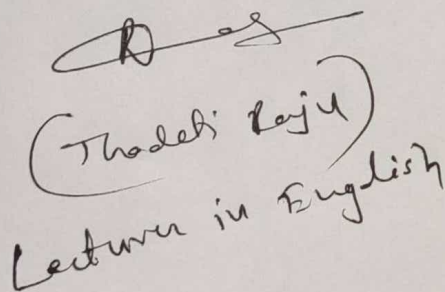 (Thadeti Raju)
Lecturer in English